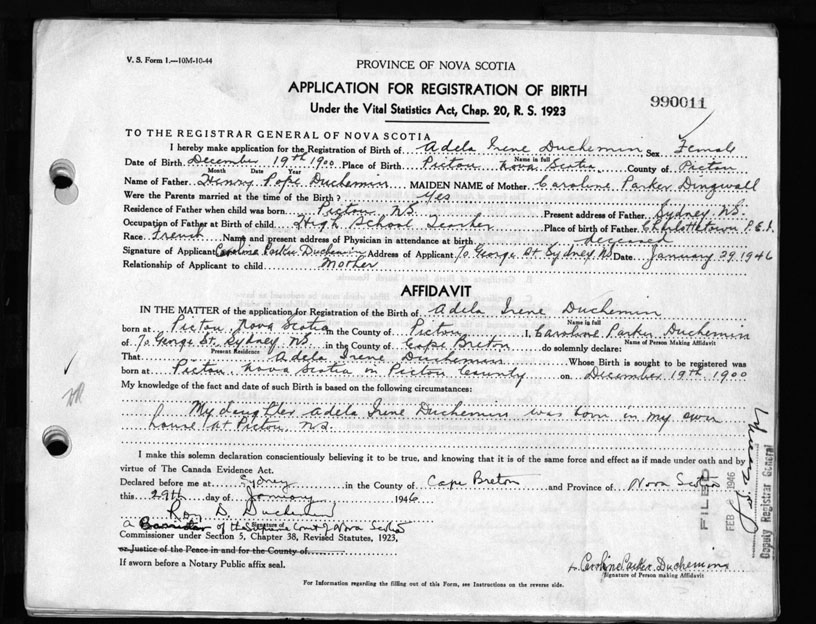 V. S. Form 1.—10M-10-44
PROVINCE OF NOVA SCOTIA
APPLICATION FOR REGISTRATION OF BIRTH
990011
Under the Vital Statistics Act, Chap. 20, R. S. 1923
TO THE REGISTRAR GENERAL OF NOVA SCOTIA
I hereby make application for the Registration of Birth of Adela Irene Duchemin Sex Female
Name in full
Date of Birth December 19th 1900 Place of Birth Pictou Nova Scotia County of Pictou
Month Date Year
Name of Father Henry Pope Duchemin MAIDEN NAME of Mother Caroline Parker Dingwall
Were the Parents married at the time of the Birth? Yes
Residence of Father when child was born Pictou N.S. Present address of Father Sydney N.S.
Occupation of Father at Birth of child High School Teacher Place of birth of Father Charlottetown P.E.I.
Race French Name and present address of Physician in attendance at birth deceased
Signature of Applicant Caroline Parker Duchemin Address of Applicant 70 George St Sydney NS Date January 29 1946
Relationship of Applicant to child Mother
AFFIDAVIT
IN THE MATTER of the application for Registration of the Birth of Adela Irene Duchemin
Name in full
born at Pictou Nova Scotia in the County of Pictou I, Caroline Parker Duchemin
Name of Person Making Affidavit
of 70 George St. Sydney NS in the County of Cape Breton do solemnly declare:
Present Residence
That Adela Irene Duchemin Whose Birth is sought to be registered was
born at Pictou Nova Scotia in Pictou County on December 19th 1900
My knowledge of the fact and date of such Birth is based on the following circumstances:
My daughter Adela Irene Duchemin was born in my own
house at Pictou N.S.
I make this solemn declaration conscientiously believing it to be true, and knowing that it is of the same force and effect as if made under oath and by
virtue of The Canada Evidence Act.
Declared before me at Sydney in the County of Cape Breton and Province of Nova Scotia
this 29th day of January 1946
D. Duchemin
Signature
a Barrister of the Supreme Court of Nova Scotia
Commissioner under Section 5, Chapter 38, Revised Statutes, 1923,
or Justice of the Peace in and for the County of
If sworn before a Notary Public affix seal.
Caroline Parker Duchemin
Signature of Person making Affidavit
For Information regarding the filling out of this Form, see Instructions on the reverse side.
FILED
FEB 1946
Deputy Registrar General